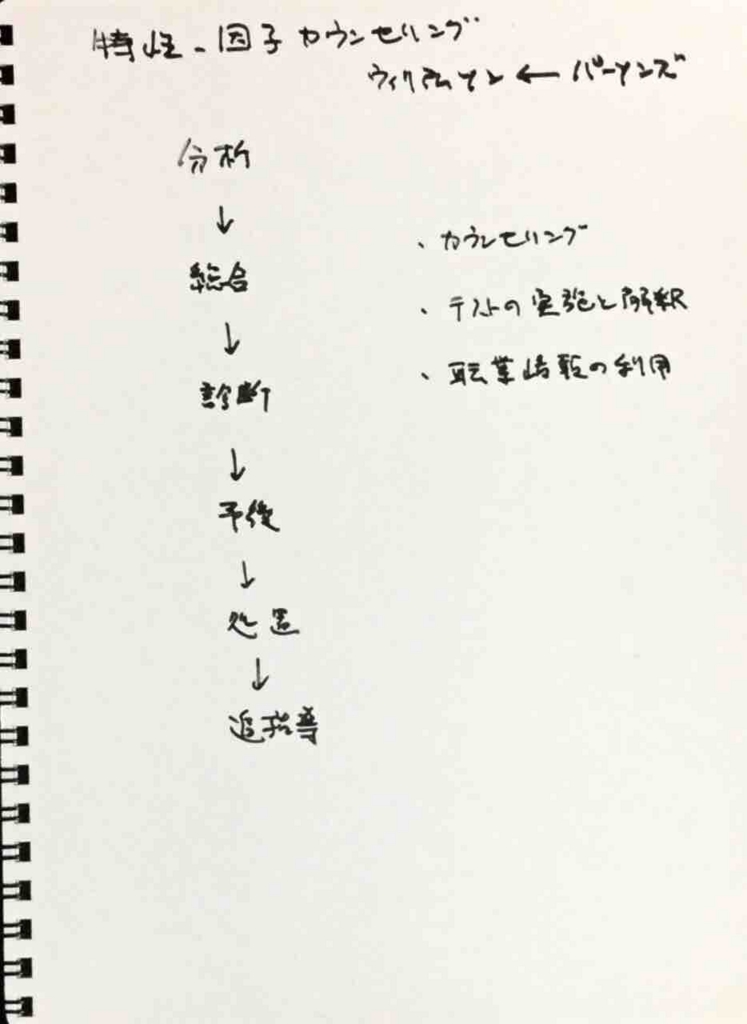 特性-因子カウンセリング
ウィリアムソン ← パーソンズ
分析
↓
総合
↓
診断
↓
予後
↓
処置
↓
追指導
・カウンセリング
・テストの実施と解釈
・職業情報の利用